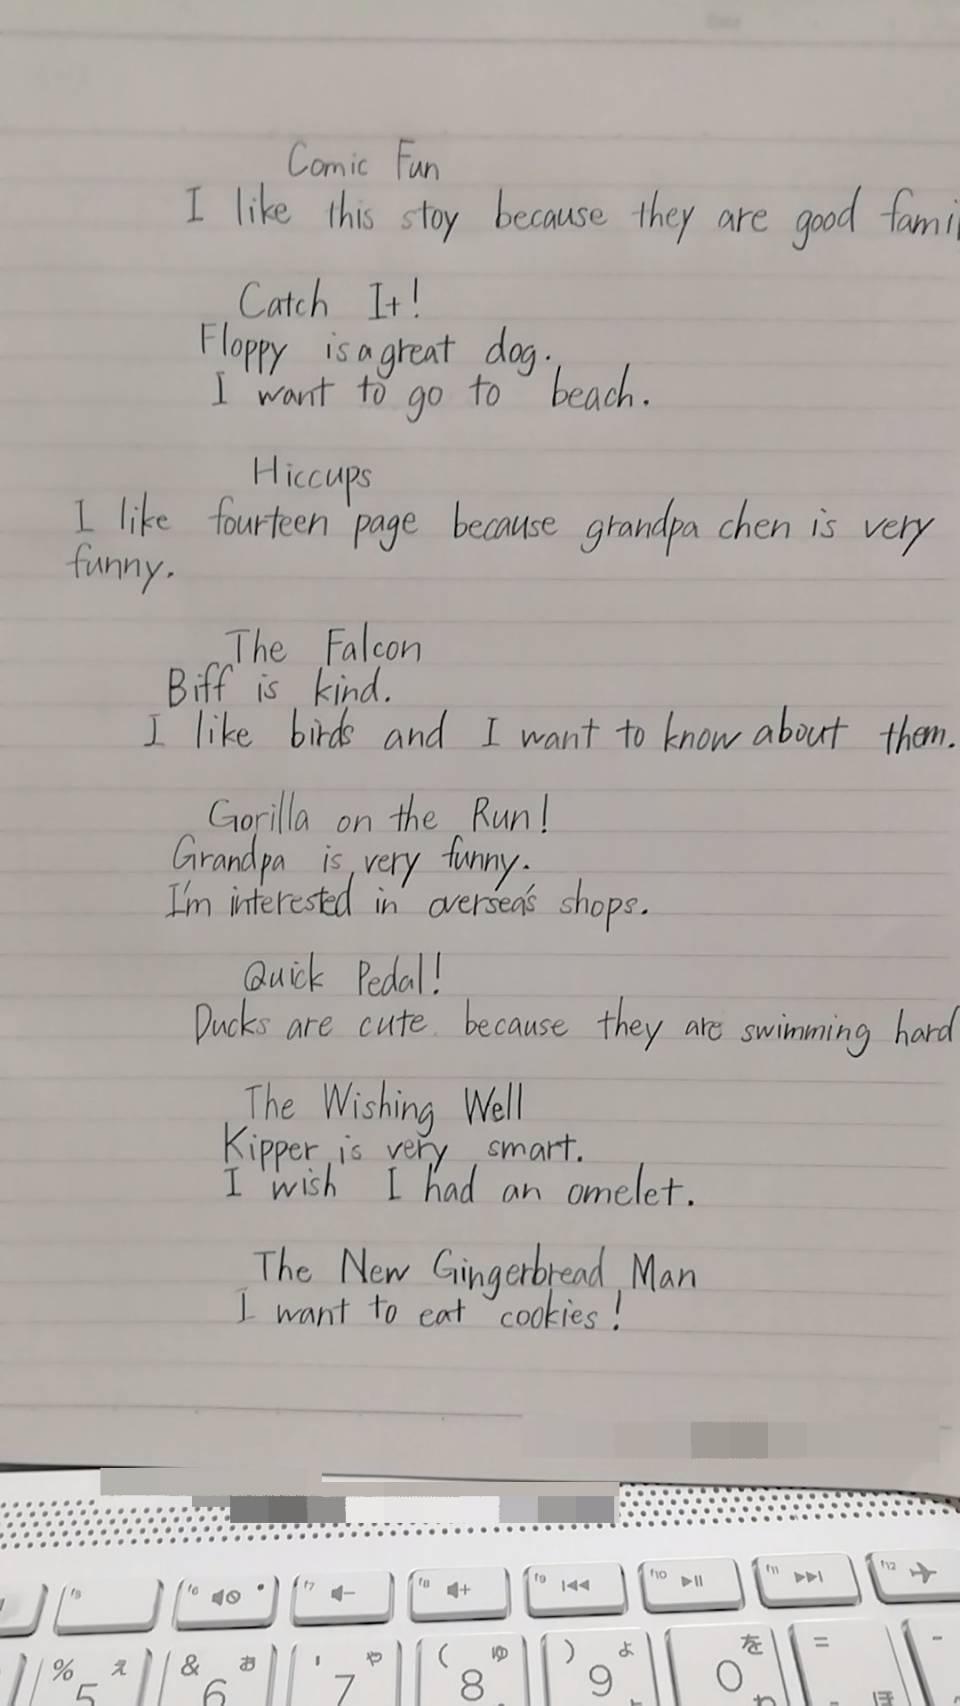 Comic Fun
I like this stoy because they are good fami
Catch It!
Floppy is a great dog.
I want to go to beach.
Hiccups
I like fourteen page because grandpa chen is very
funny.
The Falcon
Biff is kind.
I like birds and I want to know about them.
Gorilla on the Run!
Grandpa is very funny.
I'm interested in oversea's shops.
Quick Pedal!
Ducks are cute because they are swimming hard
The Wishing Well
Kipper is very smart.
I wish I had an omelet.
The New Gingerbread Man
I want to eat cookies!
f5 f6 f7 f8 f9 f10 f11 f12
% え & お ' や ( ゆ ) よ を = -
5 6 7 8 9 0 わ ほ